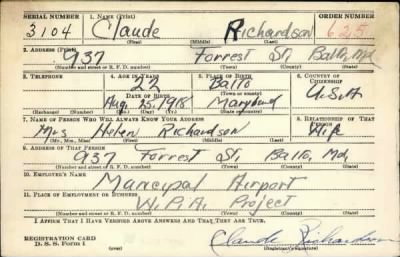 SERIAL NUMBER 1. NAME (Print) ORDER NUMBER
3104 Claude Richardson 625
(First) (Middle) (Last)
2. ADDRESS (Print)
937 Forrest St. Balto, Md
(Number and street or R. F. D. number) (Town) (County) (State)
3. TELEPHONE 4. AGE IN YEARS 5. PLACE OF BIRTH 6. COUNTRY OF CITIZENSHIP
22 Balto
DATE OF BIRTH (Town or county)
Aug. 25, 1918 Maryland U.S.A
(Exchange) (Number) (Mo.) (Day) (Yr.) (State or country)
7. NAME OF PERSON WHO WILL ALWAYS KNOW YOUR ADDRESS 8. RELATIONSHIP OF THAT PERSON
Mrs Helen Richardson Wife
(Mr., Mrs., Miss) (First) (Middle) (Last)
9. ADDRESS OF THAT PERSON
937 Forrest St. Balto, Md.
(Number and street or R. F. D. number) (Town) (County) (State)
10. EMPLOYER'S NAME
Muncipal Airport
11. PLACE OF EMPLOYMENT OR BUSINESS
W.P.A. Project
(Number and street or R. F. D. number) (Town) (County) (State)
I AFFIRM THAT I HAVE VERIFIED ABOVE ANSWERS AND THAT THEY ARE TRUE.
REGISTRATION CARD
D. S. S. Form 1 Claude Richardson
(Registrant's signature)